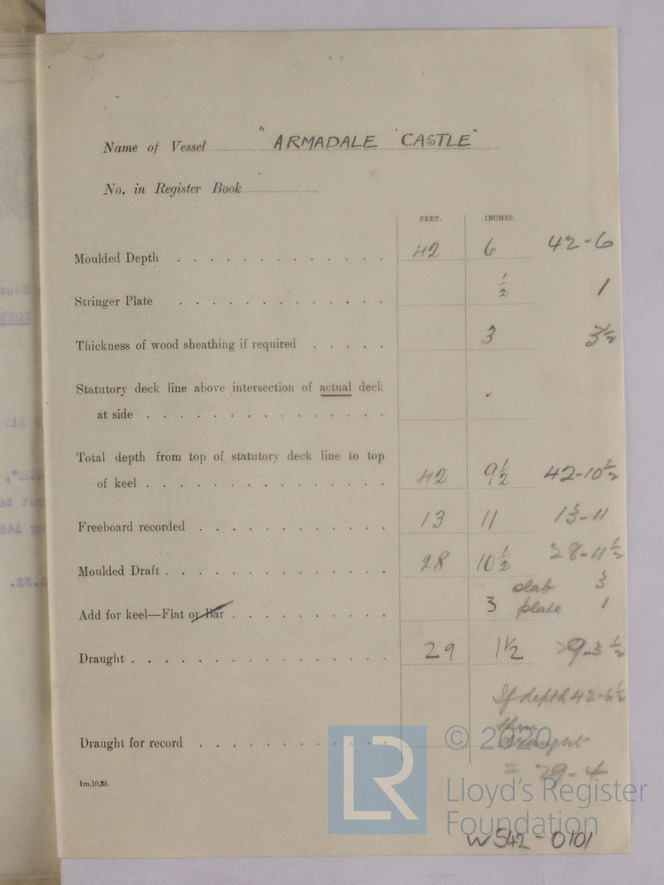 Name of Vessel "ARMADALE CASTLE"
No. in Register Book
FEET. INCHES.
Moulded Depth 42 6 42-6
Stringer Plate 1/2 1
Thickness of wood sheathing if required 3 3 1/2
Statutory deck line above intersection of actual deck
at side
Total depth from top of statutory deck line to top
of keel 42 9 1/2 42-10 1/2
Freeboard recorded 13 11 13-11
Moulded Draft 28 10 1/2 28-11 1/2
slab 3
Add for keel—Flat or Bar 3 plate 1
Draught 29 1 1/2 29-3 1/2
If depth 42-6 1/2
then
Draught for record draught
= 29-4
1m,10,29.
LR
© 2020
Lloyd's Register
Foundation
W542-0101